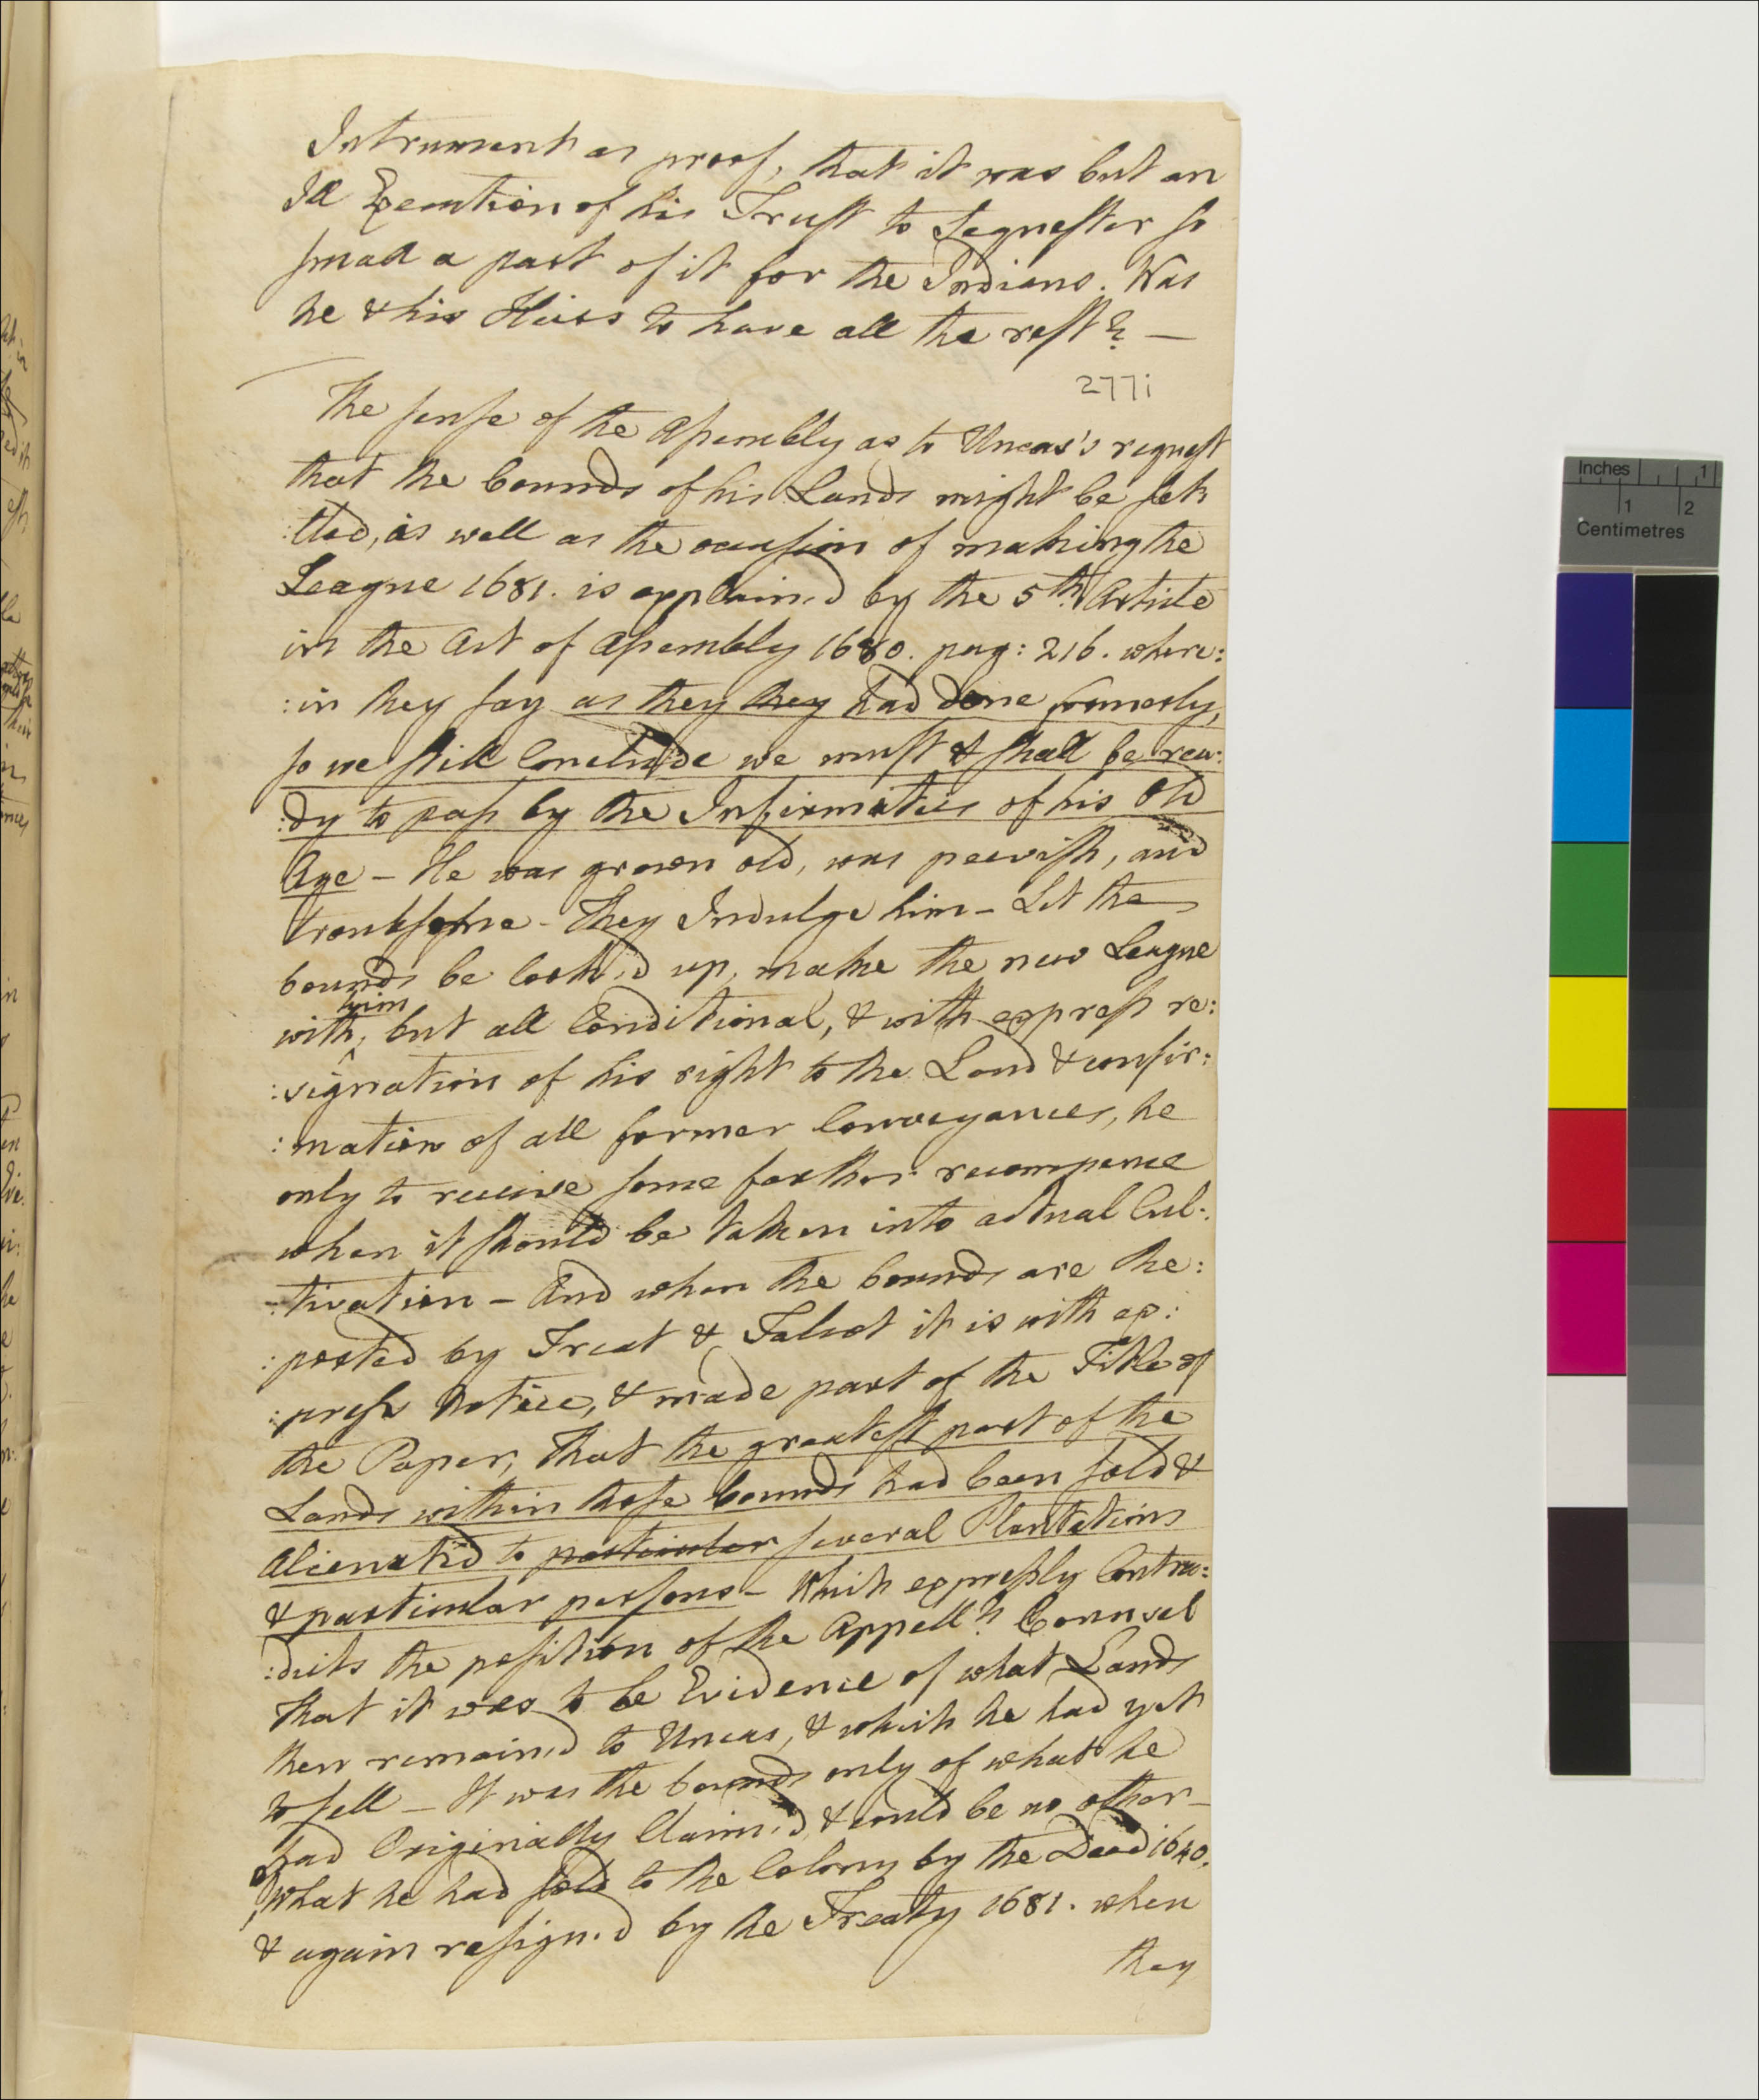 Intrument as proof, that it was but an
Ill Execution of his Trust to Sequester so
small a part of it for the Indians. Was
he & his Heirs to have all the rest? —
277i
The sense of the Assembly as to Uncas's request
that the bounds of his Lands might be set:
:tled, as well as the occasion of making the
League 1681. is explain'd by the 5th. Article
in the Act of Assembly 1680. pag: 216. where:
:in they say as they they had done formerly,
so we still Conclude we must & shall be rea:
:dy to pass by the Infirmities of his Old
Age - He was grown old, was peevish, and
troublesome - They Indulge him - Let the
bounds be look'd up, make the new League
with him, but all Conditional, & with express re:
:signation of his right to the Land & confir:
:mation of all former Conveyances, he
only to receive some farther recompence
when it should be taken into actual Cul:
:tivation - And when the bounds are Re:
:ported by Treat & Talcot it is with ex:
:press Notice, & made part of the Title of
the Paper, That the greatest part of the
Lands within those bounds had been sold &
Alienated to particular several Plantations
& particular persons - Which expressly Contra:
:dicts the position of the Appellts Counsel
That it was to be Evidence of what Lands
then remain'd to Uncas, & which he had yet
to sell - It was the bounds only of what he
had Originally Claim'd, & could be no other -
of what he had sold to the Colony by the Deed 1640.
& again resign'd by the Treaty 1681. when
they
Inches 1
1 2
Centimetres